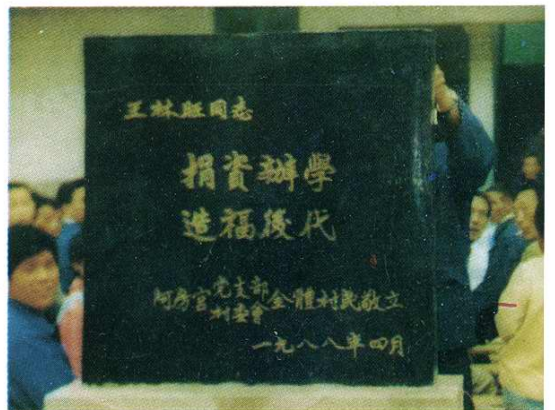 王林旺同志
捐資辦學
造福後代
阿房宫党支部村委會全體村民敬立
一九八八年四月